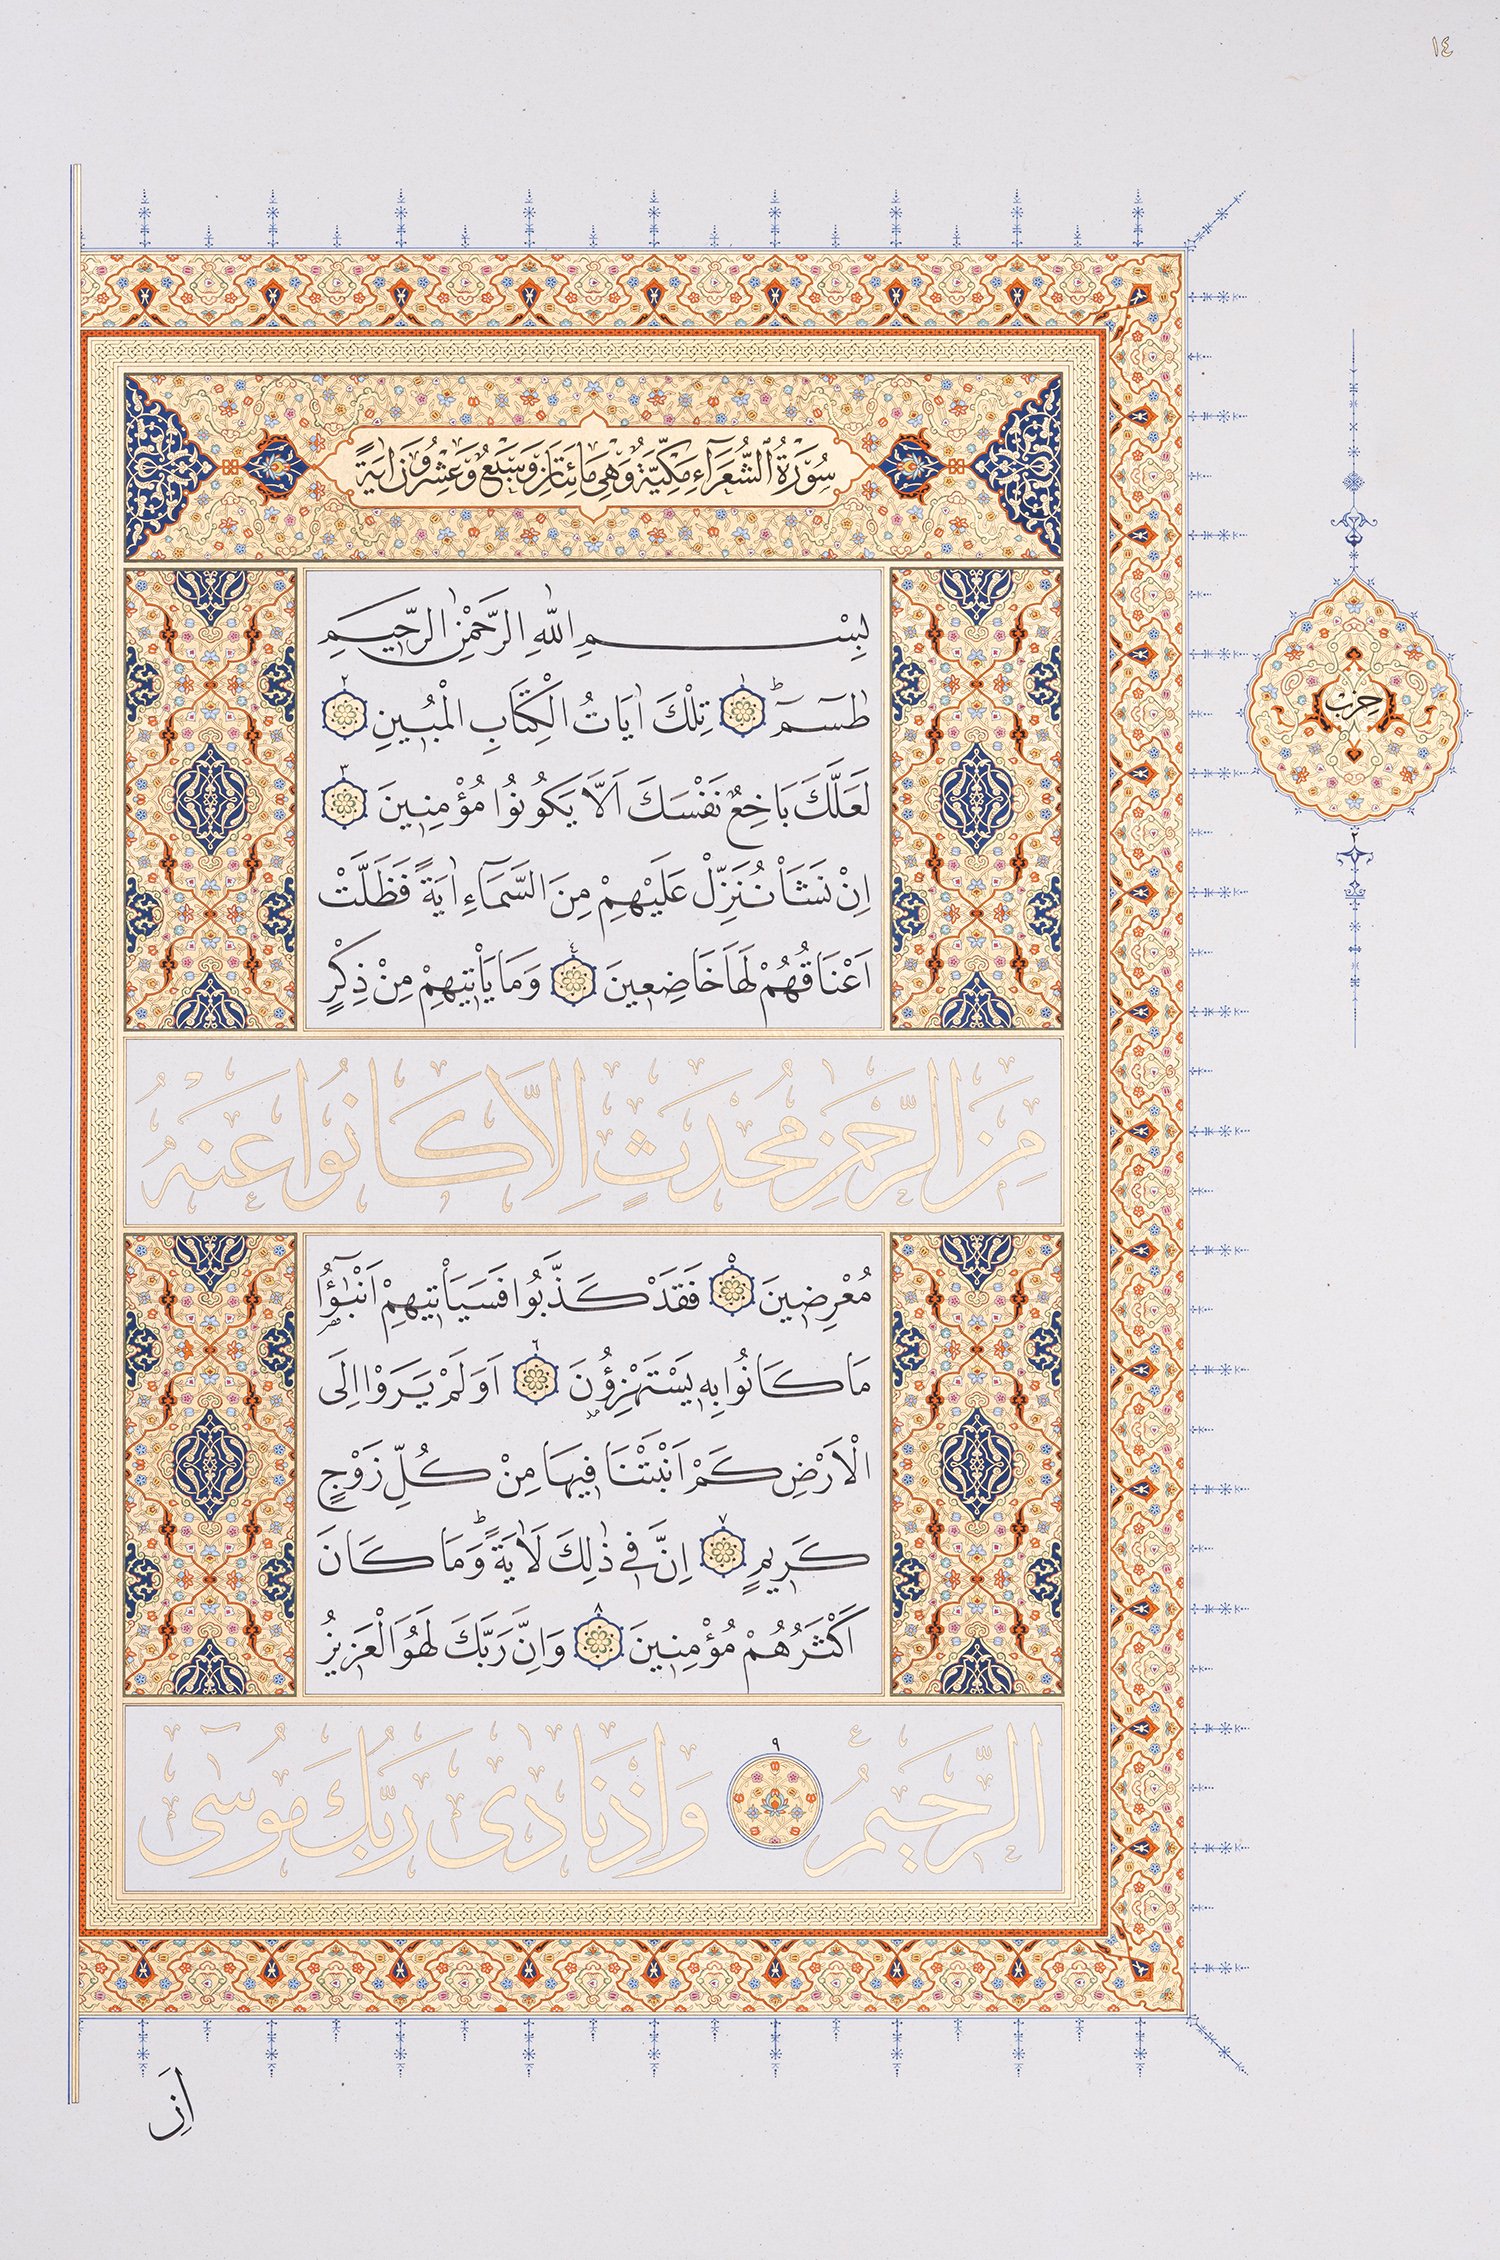 ١٤
سُورَةُ ٱلشُّعَرَآءِ مَكِّيَّةٌ وَهِيَ مِائَتَانِ وَسَبْعٌ وَعِشْرُونَ اٰيَةً
بِسْمِ اللّٰهِ الرَّحْمٰنِ الرَّحِيمِ
طٰسٓمٓ ۚ ١ تِلْكَ اٰيَاتُ الْكِتَابِ الْمُبٖينِ ٢
لَعَلَّكَ بَاخِعٌ نَفْسَكَ اَلَّا يَكُونُوا مُؤْمِنٖينَ ٣
اِنْ نَشَأْ نُنَزِّلْ عَلَيْهِمْ مِنَ السَّمَٓاءِ اٰيَةً فَظَلَّتْ
اَعْنَاقُهُمْ لَهَا خَاضِعٖينَ ٤ وَمَا يَأْتٖيهِمْ مِنْ ذِكْرٍ
مِنَ الرَّحْمٰنِ مُحْدَثٍ اِلَّا كَانُوا عَنْهُ
مُعْرِضٖينَ ٥ فَقَدْ كَذَّبُوا فَسَيَأْتٖيهِمْ اَنْبٰٓؤُ۬ا
مَا كَانُوا بِهٖ يَسْتَهْزِؤُ۫نَ ٦ اَوَلَمْ يَرَوْا اِلَى
الْاَرْضِ كَمْ اَنْبَتْنَا فٖيهَا مِنْ كُلِّ زَوْجٍ
كَرٖيمٍ ٧ اِنَّ فٖي ذٰلِكَ لَاٰيَةً ؕ وَمَا كَانَ
اَكْثَرُهُمْ مُؤْمِنٖينَ ٨ وَاِنَّ رَبَّكَ لَهُوَ الْعَزٖيزُ
الرَّحٖيمُ ع ٩ وَاِذْ نَادٰى رَبُّكَ مُوسٰٓى
حِزْبْ
٢
اَنِ